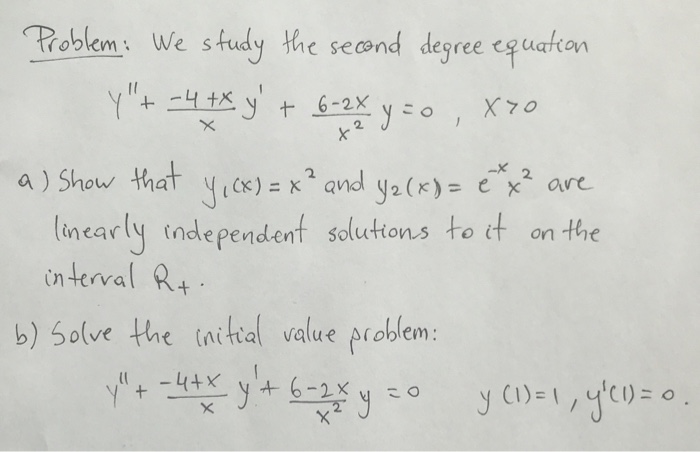 Problem: We study the second degree equation
y'' + -4+x/x y' + 6-2x/x² y = 0 , x>0
a) Show that y₁(x) = x² and y₂(x) = e⁻ˣx² are
linearly independent solutions to it on the
interval R₊.
b) Solve the initial value problem:
y'' + -4+x/x y' + 6-2x/x² y = 0 y(1)=1, y'(1)=0.